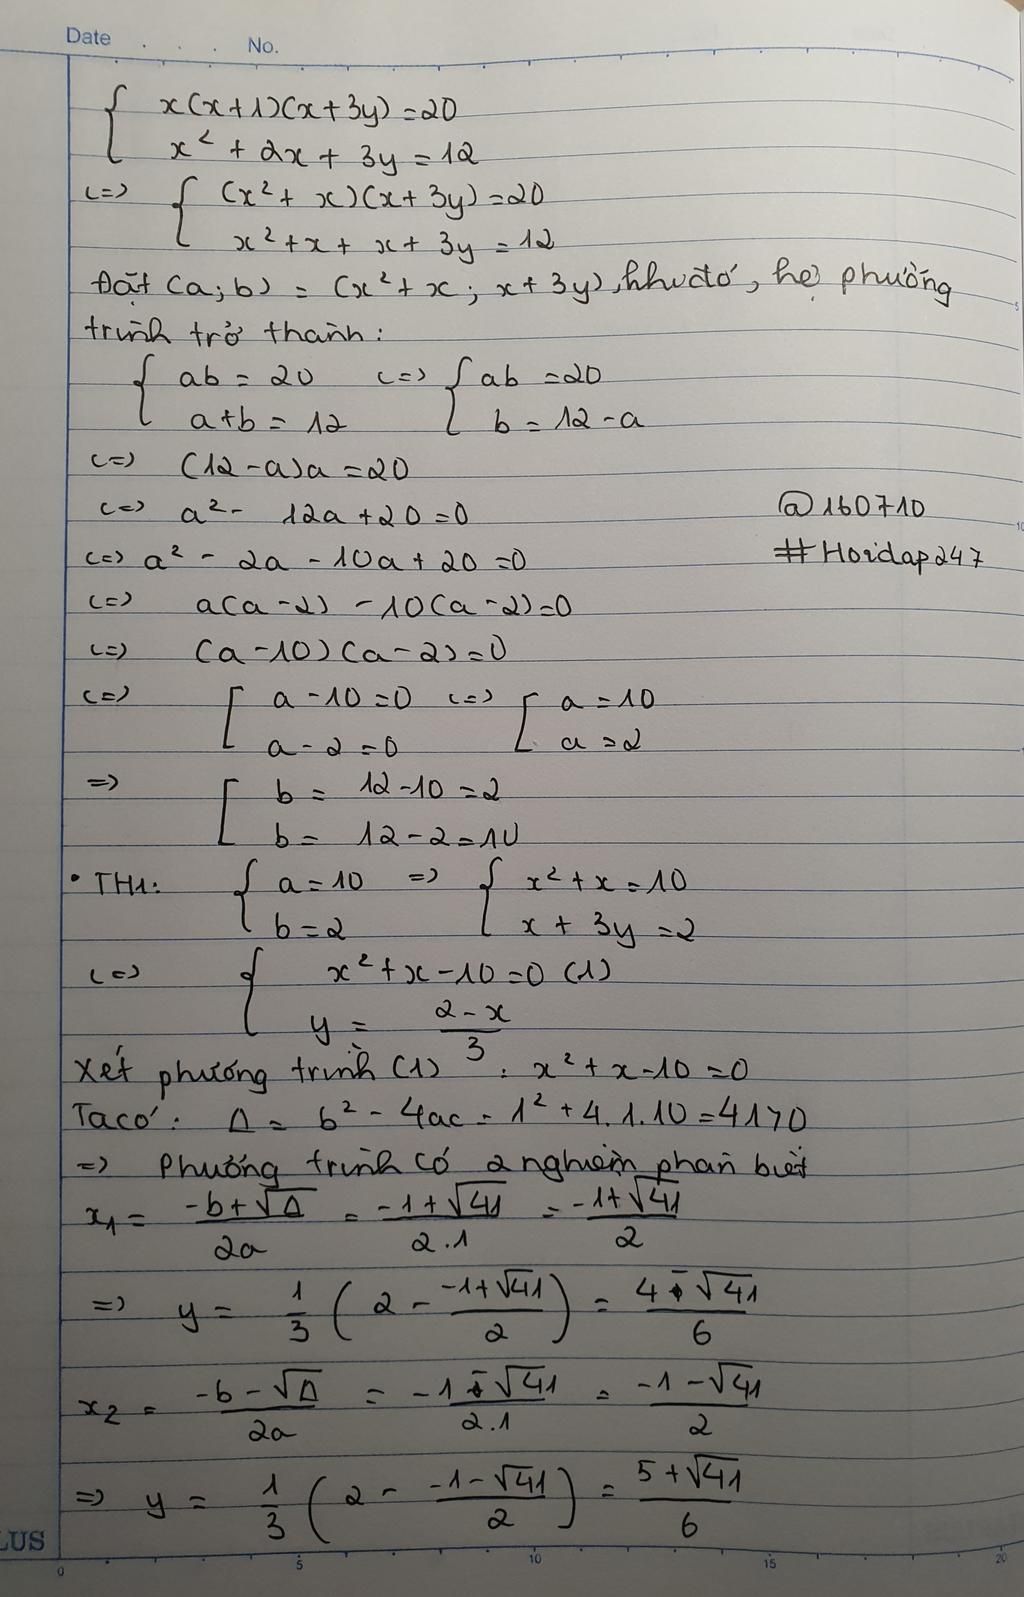 Date . . . . No.
{ x(x+1)(x+3y)=20
x² + 2x + 3y = 12
<=> { (x²+x)(x+3y)=20
x²+x+x+3y=12
Đặt (a;b) = (x²+x; x+3y), khi đó, hệ phương
trình trở thành:
{ ab = 20 <=> { ab = 20
a+b = 12 b = 12-a
<=> (12-a)a = 20
<=> a² - 12a + 20 = 0 @160710
<=> a² - 2a - 10a + 20 = 0 #Hoidap247
<=> a(a-2) - 10(a-2) = 0
<=> (a-10)(a-2) = 0
<=> [ a-10=0 <=> [ a=10
a-2=0 a=2
=> [ b = 12-10=2
b = 12-2=10
• TH1: { a=10 => { x²+x=10
b=2 x+3y=2
<=> { x²+x-10=0 (1)
y = (2-x)/3
Xét phương trình (1) : x²+x-10=0
Ta có: Δ = b² - 4ac = 1² + 4.1.10 = 41>0
=> Phương trình có 2 nghiệm phân biệt
x₁ = (-b+√Δ)/2a = (-1+√41)/2.1 = (-1+√41)/2
=> y = 1/3 (2 - (-1+√41)/2) = (4-√41)/6
x₂ = (-b-√Δ)/2a = (-1-√41)/2.1 = (-1-√41)/2
=> y = 1/3 (2 - (-1-√41)/2) = (5+√41)/6
LUS
0 5 10 15 20